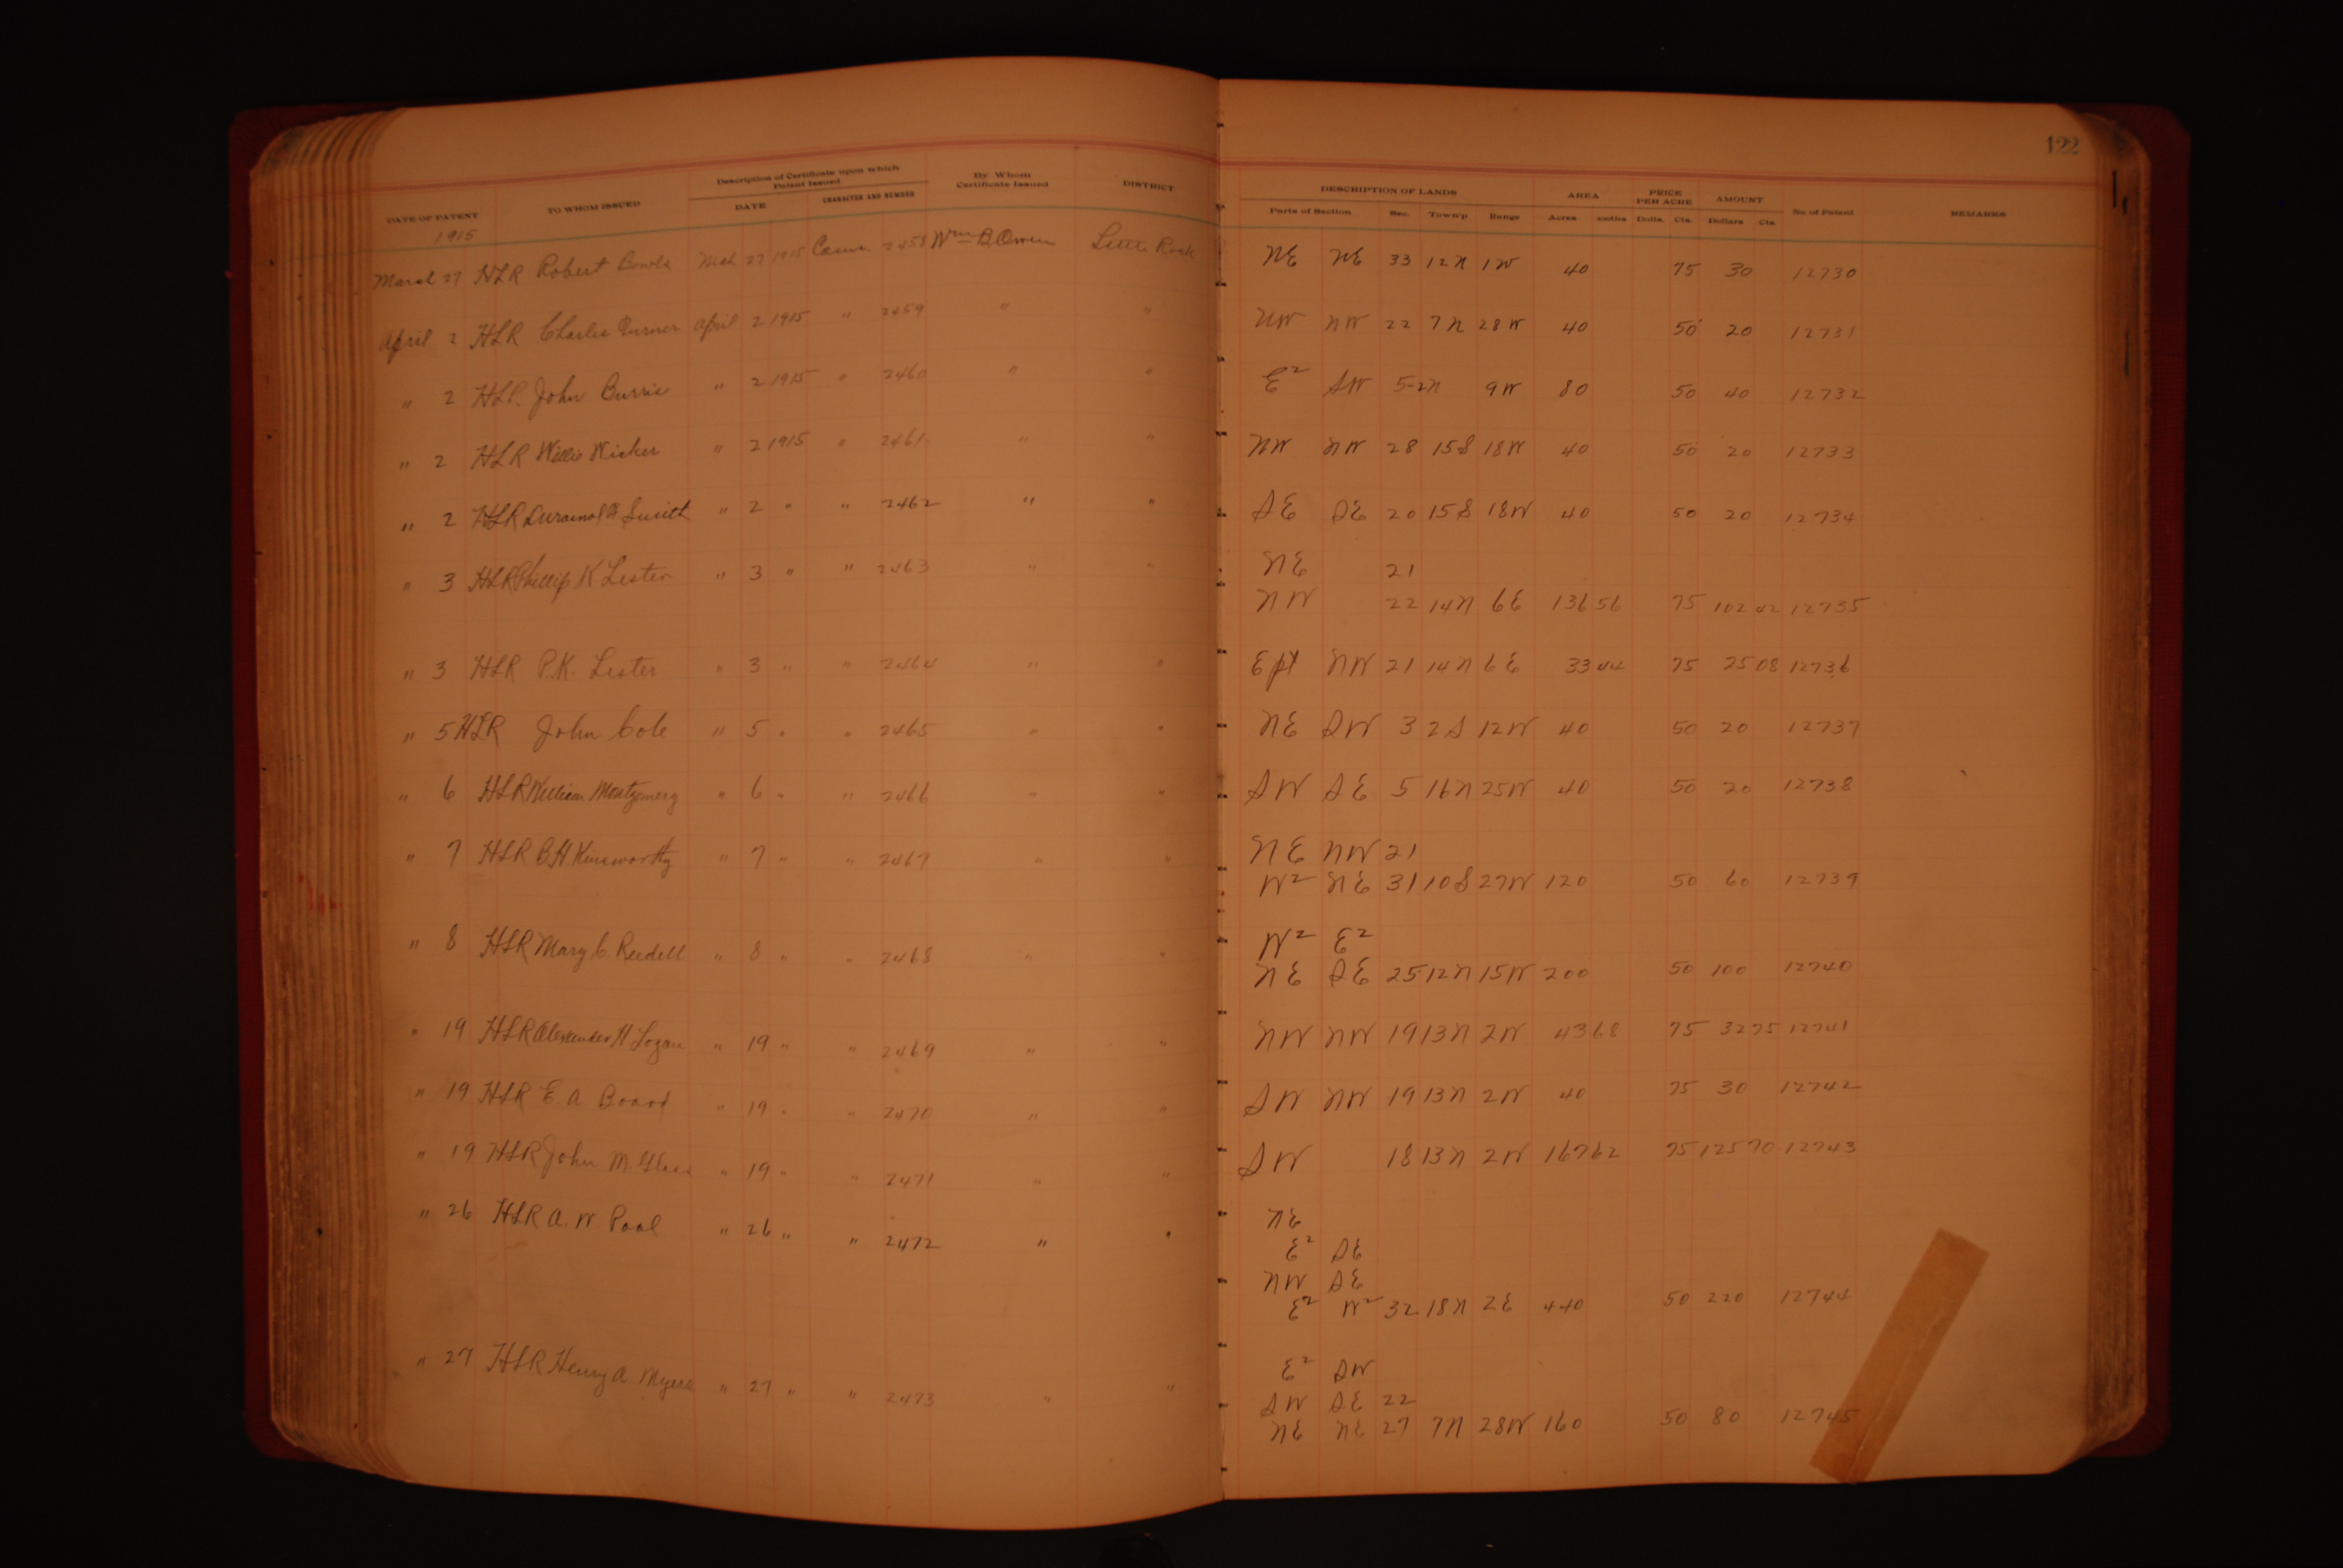 122
DATE OF PATENT TO WHOM ISSUED Description of Certificate upon which Patent Issued DATE CHARACTER AND NUMBER By Whom Certificate Issued DISTRICT DESCRIPTION OF LANDS Parts of Section Sec. Town'p Range AREA Acres 100ths PRICE PER ACRE Dolls. Cts. AMOUNT Dollars Cts. No. of Patent REMARKS
1915
March 27 HLR Robert Mch 27 1915 2458 Wm B. Owen Little Rock NE NE 33 12N 1W 40 75 30 12730
April 2 HLR Charlie Turner April 2 1915 " 2459 " " NW NW 22 7N 28W 40 50 20 12731
" 2 HLR John Burris " 2 1915 " 2460 " " E2 SW 5 2N 9W 80 50 40 12732
" 2 HLR Willie Wicker " 2 1915 " 2461 " " NW NW 28 15S 18W 40 50 20 12733
" 2 HLR Smith " 2 " " 2462 " " SE SE 20 15S 18W 40 50 20 12734
" 3 HLR Phillip K Lester " 3 " " 2463 " " NE 21
NW 22 14N 6E 136 56 75 102 42 12735
" 3 HLR P.K. Lester " 3 " " 2464 " " E pt NW 21 14N 6E 33 44 75 25 08 12736
" 5 HLR John Cole " 5 " " 2465 " " NE SW 3 2S 12W 40 50 20 12737
" 6 HLR William Montgomery " 6 " " 2466 " " SW SE 5 16N 25W 40 50 20 12738
" 7 HLR B H Kinsworthy " 7 " " 2467 " " NE NW 21
W2 NE 31 10S 27W 120 50 60 12739
" 8 HLR Mary C. Reedell " 8 " " 2468 " " W2 E2
NE SE 25 12N 15W 200 50 100 12740
" 19 HLR Alexander H Logan " 19 " " 2469 " " NW NW 19 13N 2W 43 68 75 32 75 12741
" 19 HLR E. A Board " 19 " " 2470 " " SW NW 19 13N 2W 40 75 30 12742
" 19 HLR John M. Glass " 19 " " 2471 " " SW 18 13N 2W 167 62 75 125 70 12743
" 26 HLR A. W Pool " 26 " " 2472 " " NE
E2 SE
NW SE
E2 W2 32 18N 2E 440 50 220 12744
" 27 HLR Henry A. Myers " 27 " " 2473 " " E2 SW
SW SE 22
NE NE 27 7N 28W 160 50 80 12745